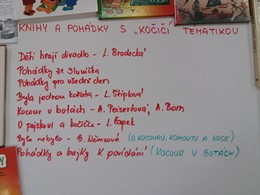 KNIHY A POHÁDKY S „KOČIČÍ" TEMATIKOU
Děti hrají divadlo - L. Brodecká
Pohádky ze sluníčka
Pohádky pro všední den
Byla jednou koťata - L. Štíplová
Kocour v botách - A. Peisertová, A. Born
O pejskovi a kočičce - J. Čapek
Bylo nebylo - B. Němcová (O KOCOUROVI, KOHOUTU A KOSE)
Pohádky a bajky k povídání (KOCOUR V BOTÁCH)